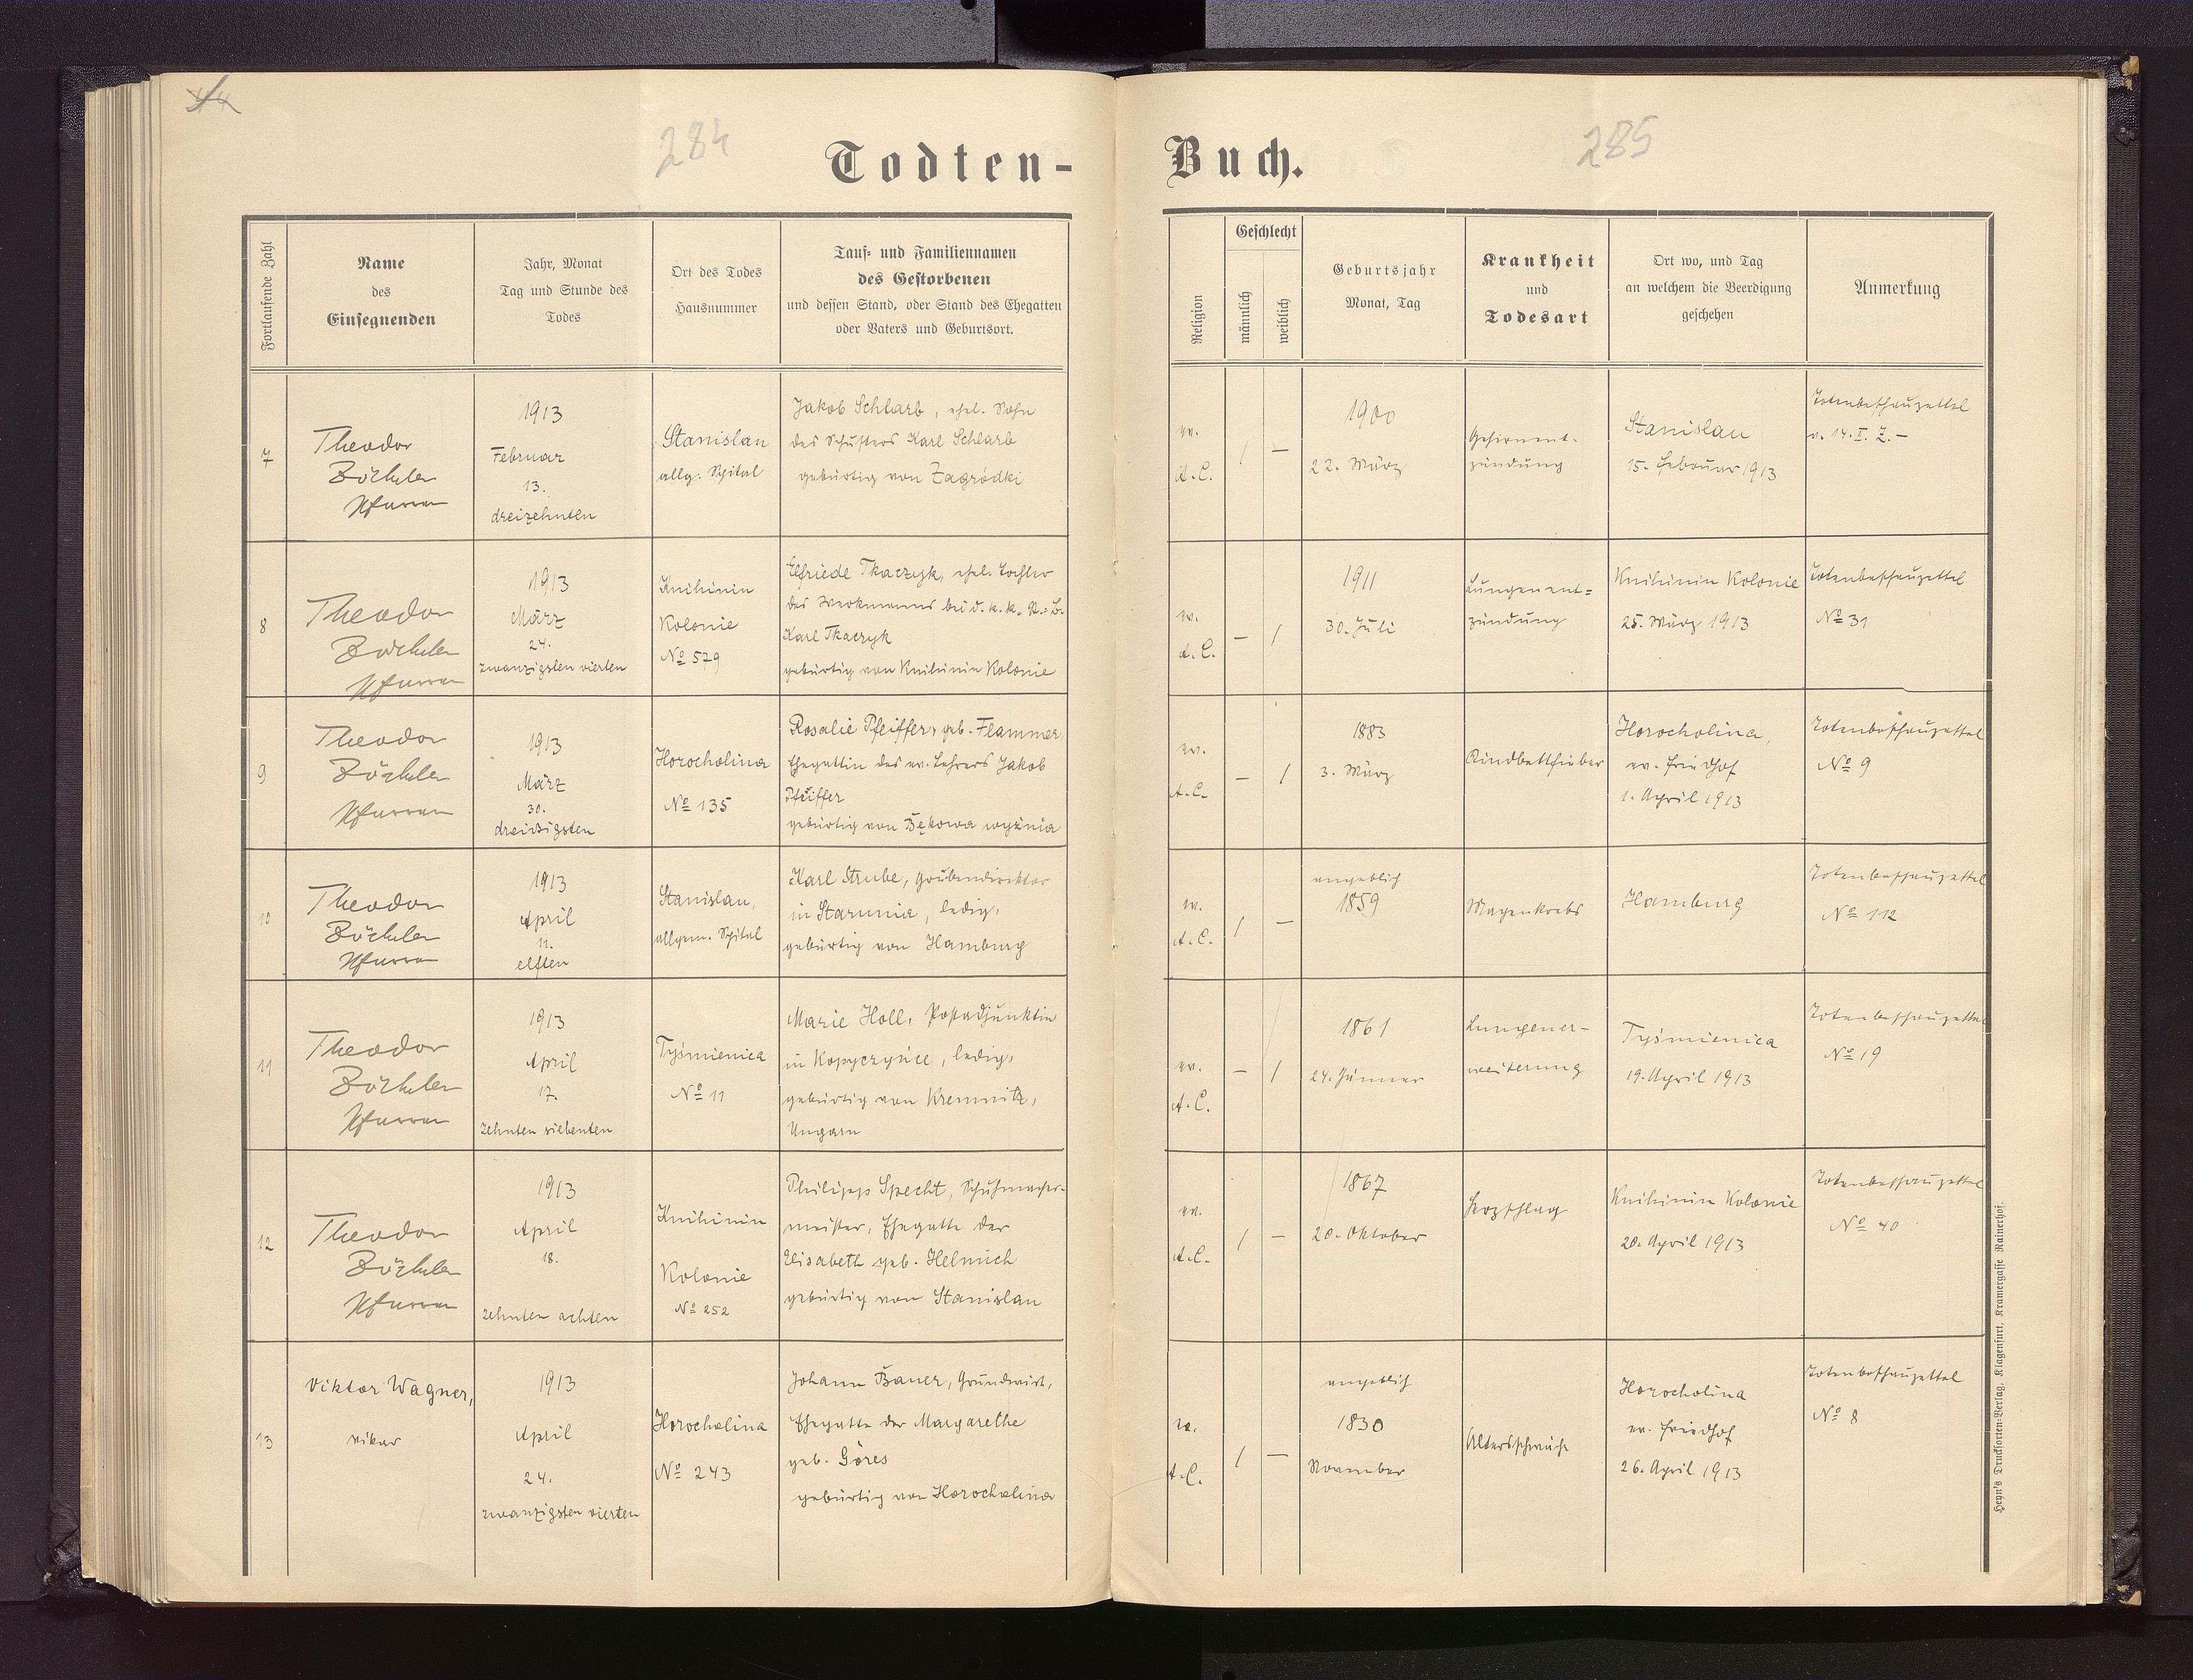 284
Todten-
Fortlaufende Zahl
Name
des
Einsegnenden
Jahr, Monat
Tag und Stunde des
Todes
Ort des Todes
Hausnummer
Tauf- und Familiennamen
des Gestorbenen
und dessen Stand, oder Stand des Ehegatten
oder Vaters und Geburtsort.
7
Theodor
Zöckler
Pfarrer
1913
Februar
13.
dreizehnten
Stanislau
allg. Spital
Jakob Schlarb, ehel. Sohn
des Schusters Karl Schlarb
gebürtig von Zagródki
8
Theodor
Zöckler
Pfarrer
1913
März
24.
zwanzigsten vierten
Knihinin
Kolonie
No 579
Elfriede Tkaczyk, ehel. Tochter
des Werkmanns bei d. k. k. St.-B.
Karl Tkaczyk
gebürtig von Knihinin Kolonie
9
Theodor
Zöckler
Pfarrer
1913
März
30.
dreissigsten
Horocholina
No 135
Rosalie Pfeiffer, geb. Flammer,
Ehegattin des ev. Lehrers Jakob
Pfeiffer
gebürtig von Bękowa wyżnia
10
Theodor
Zöckler
Pfarrer
1913
April
11.
elften
Stanislau,
allgem. Spital
Karl Strube, Grubendirektor
in Starunia, ledig,
gebürtig von Hamburg
11
Theodor
Zöckler
Pfarrer
1913
April
17.
zehnten siebenten
Tyśmienica
No 11
Marie Holl, Postadjunktin
in Kopyczyńce, ledig,
gebürtig von Kremnitz,
Ungarn
12
Theodor
Zöckler
Pfarrer
1913
April
18.
zehnten achten
Knihinin
Kolonie
No 252
Philipp Specht, Schuhmacher-
meister, Ehegatte der
Elisabeth geb. Helmich
gebürtig von Stanislau
13
Viktor Wagner,
Vikar
1913
April
24.
zwanzigsten vierten
Horocholina
No 243
Johann Bauer, Grundwirt,
Ehegatte der Margarethe
geb. Göres
gebürtig von Horocholina
285
Buch.
Religion
Geschlecht
männlich
weiblich
Geburtsjahr
Monat, Tag
Krankheit
und
Todesart
Ort wo, und Tag
an welchem die Beerdigung
geschehen
Anmerkung
ev.
A. C.
/
—
1900
22. März
Gehirnent-
zündung
Stanislau
15. Februar 1913
Totenbeschauzettel
v. 14. II. Z. —
ev.
A. C.
—
/
1911
30. Juli
Lungenent=
zündung
Knihinin Kolonie
25. März 1913
Totenbeschauzettel
No 31
ev.
A. C.
—
/
1883
3. März
Kindbettfieber
Horocholina,
ev. Friedhof
1. April 1913
Totenbeschauzettel
No 9
ev.
A. C.
/
—
angeblich
1859
Magenkrebs
Hamburg
Totenbeschauzettel
No 112
ev.
A. C.
—
/
1861
24. Jänner
Lungener-
weiterung
Tyśmienica
19. April 1913
Totenbeschauzettel
No 19
ev.
A. C.
/
—
1867
20. Oktober
Herzschlag
Knihinin Kolonie
20. April 1913
Totenbeschauzettel
No 40
ev.
A. C.
/
—
angeblich
1830
November
Altersschwäche
Horocholina
ev. Friedhof
26. April 1913
Totenbeschauzettel
No 8
Heyn's Drucksorten-Verlag, Klagenfurt, Kramergasse Rainerhof.